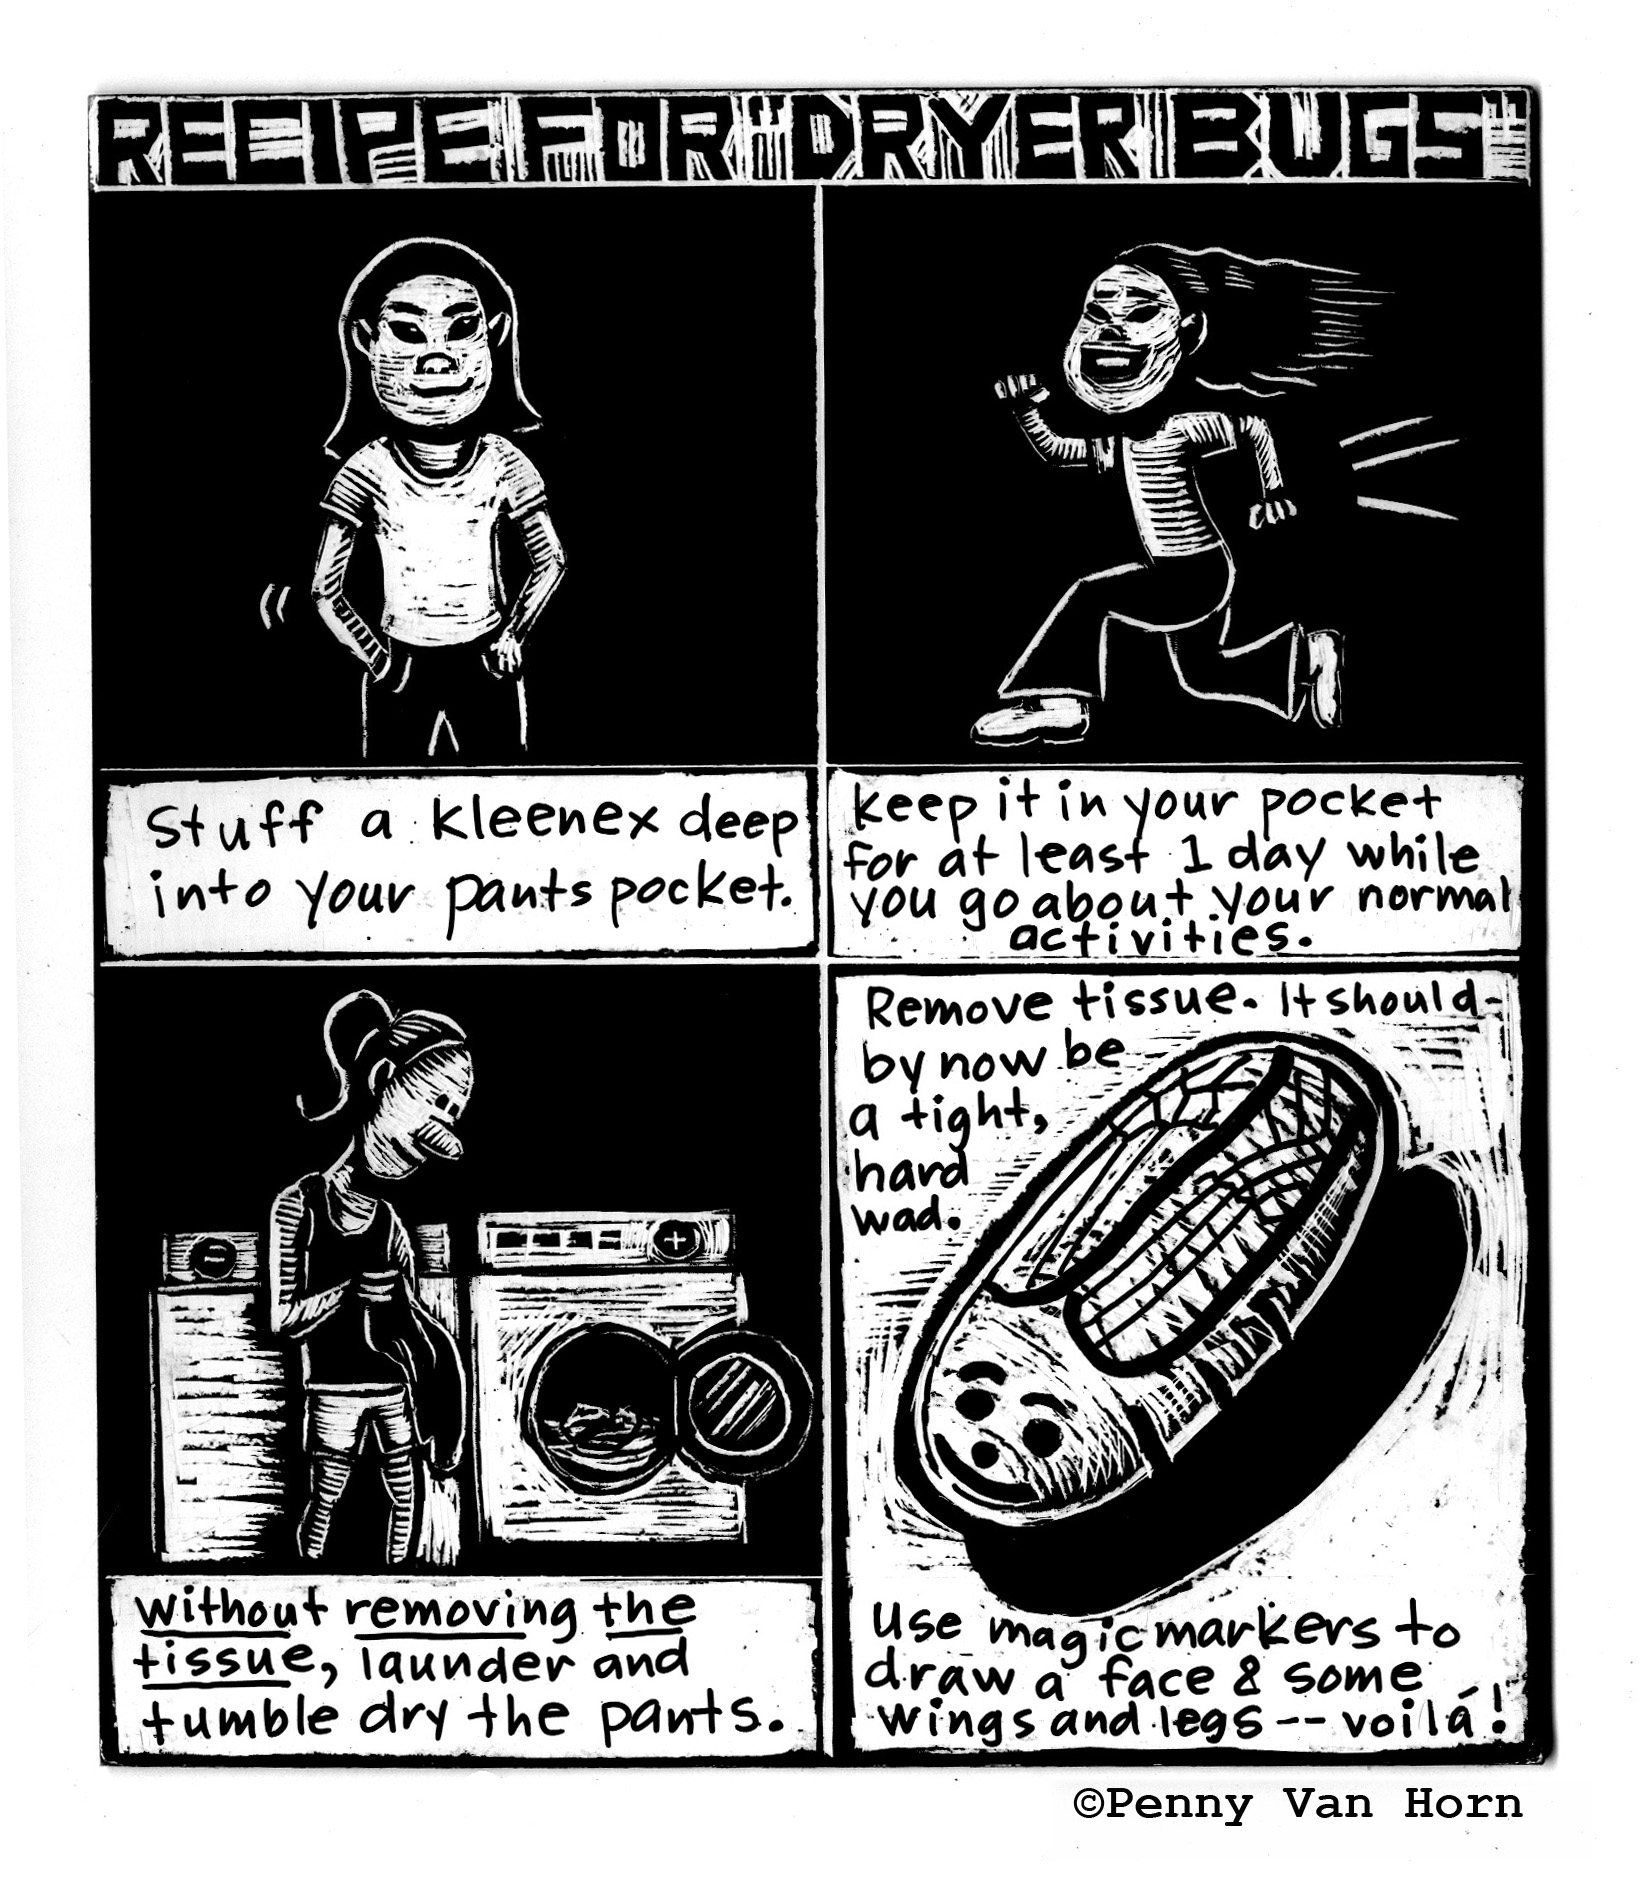 RECIPE FOR "DRYER BUGS"
Stuff a kleenex deep
into your pants pocket.
keep it in your pocket
for at least 1 day while
you go about your normal
activities.
without removing the
tissue, launder and
tumble dry the pants.
Remove tissue. It should-
by now be
a tight,
hard
wad.
Use magic markers to
draw a face & some
wings and legs -- voilá!
©Penny Van Horn